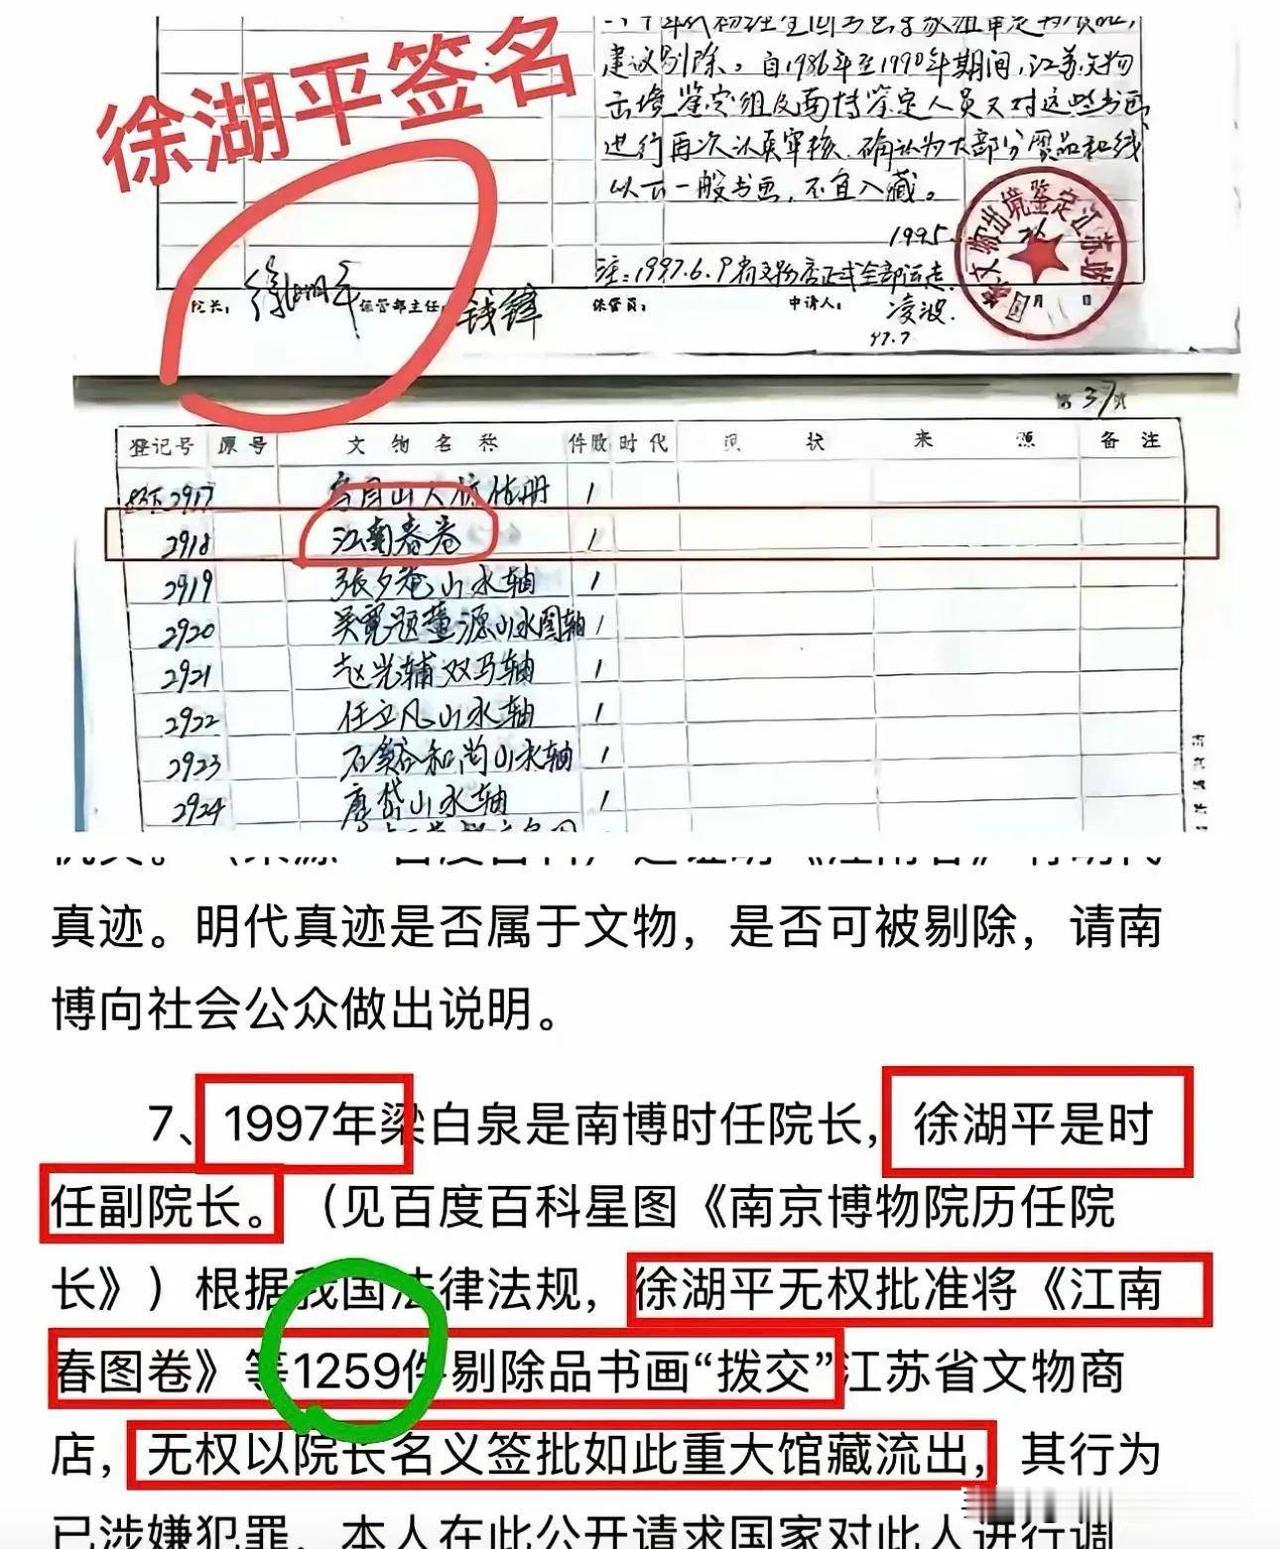 徐湖平签名
建议剔除。自1986年至1990年期间,江苏文物
出境鉴定组及南博鉴定人员又对这些书画
进行再次认真审核,确认为大部分赝品和线
以下一般书画,不宜入藏。
1995.
注:1997.6.9有文物店正式全部运走.
院长: 徐湖平 保管部主任: 钱锋 保管员: 申请人: 凌波.
97.7
文物出境鉴定江苏站
月 日
第37页
登记号 原号 文物名称 件数 时代 现状 来源 备注
2917 册 1
2918 江南春卷 1
2919 张夕菴山水轴 1
2920 吴宽题董源山水图轴 1
2921 赵光辅双马轴 1
2922 任立凡山水轴 1
2923 石谿和尚山水轴 1
2924 唐岱山水轴 1
真迹。明代真迹是否属于文物，是否可被剔除，请南
博向社会公众做出说明。
7、1997年梁白泉是南博时任院长，徐湖平是时
任副院长。（见百度百科星图《南京博物院历任院
长》）根据我国法律法规，徐湖平无权批准将《江南
春图卷》等1259件剔除品书画“拨交”江苏省文物商
店，无权以院长名义签批如此重大馆藏流出，其行为
已涉嫌犯罪，本人在此公开请求国家对此人进行调